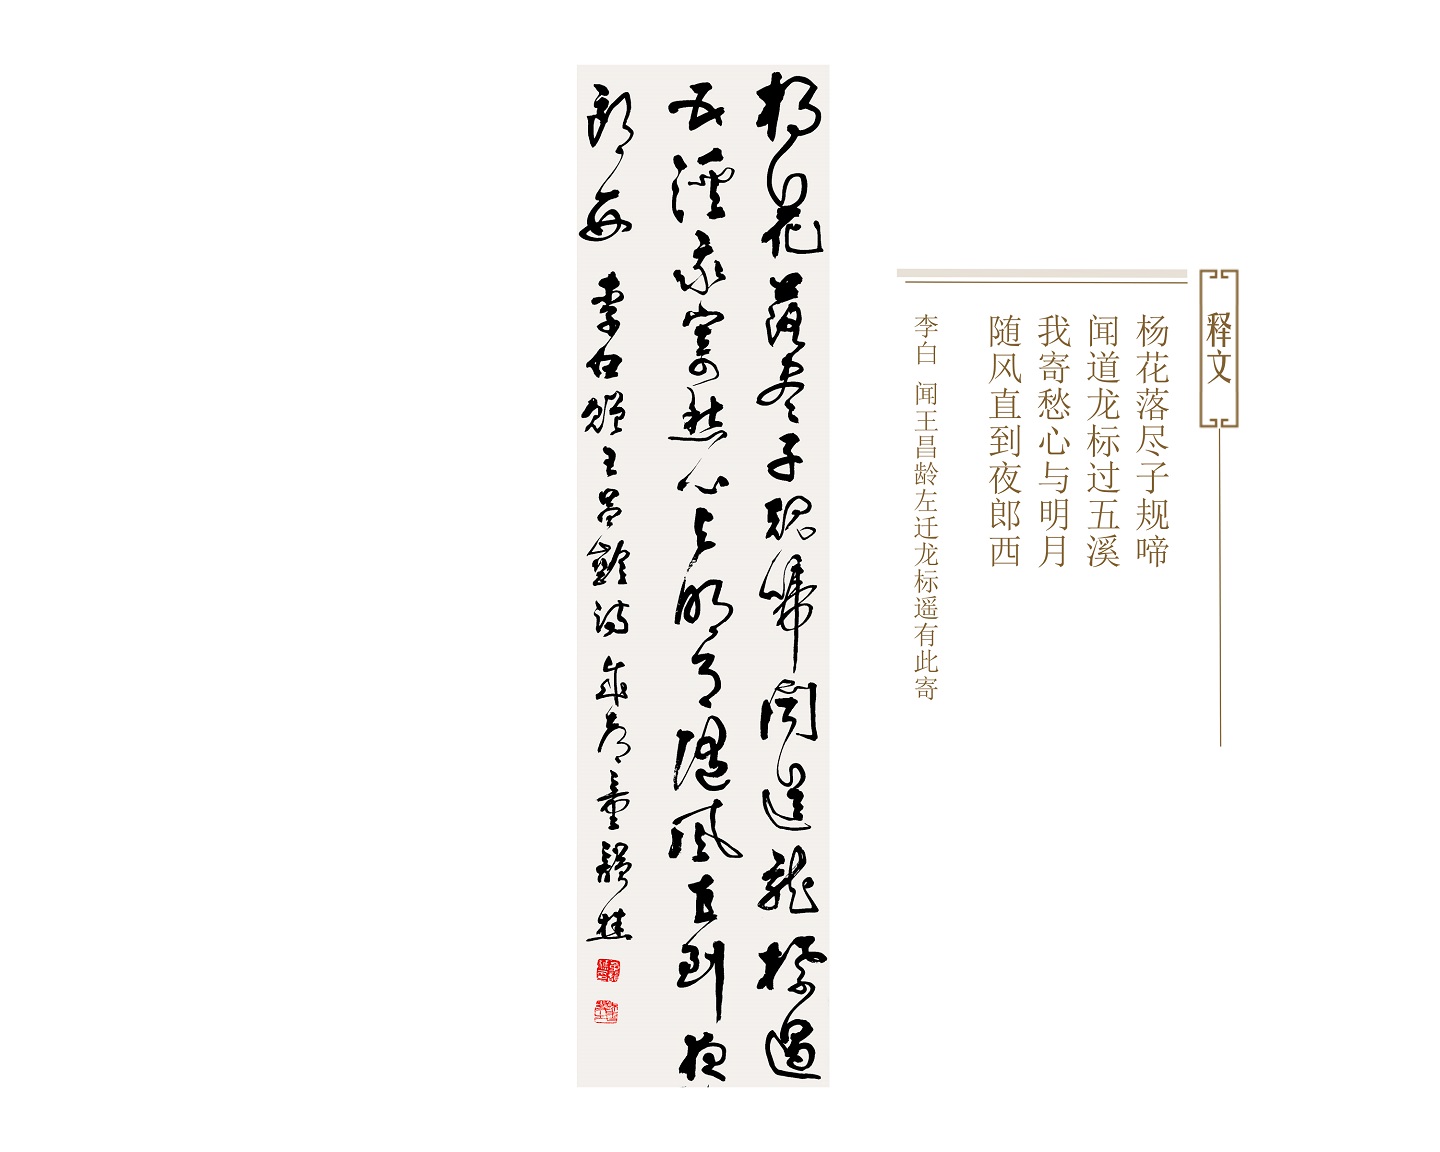 释文
杨花落尽子规啼
闻道龙标过五溪
我寄愁心与明月
随风直到夜郎西
李白 闻王昌龄左迁龙标遥有此寄
楊花落尽子規啼聞道龍標過
五溪我寄愁心与明月随風直到夜
郎西 李白贈王昌齡詩 成都童